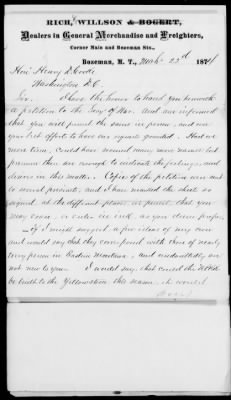 RICH, WILLSON & BOGERT,
Dealers in General Merchandise and Freighters,
Corner Main and Bozeman Sts.,
Bozeman, M. T., March 23d 1874
Hon. Henry D. Cooke
Washington D.C.
Sir. I have the honor to hand you herewith
a petition to the Secy of War. And am informed
that you will present the same in person, and use
your best efforts to have our request granted. Had we
more time, could have secured many more names but
presume these are enough to indicate the feelings, and
desires in this matter. Copies of the petition were sent
to several precincts, and I have marked the sheets so
signed at the different places in pencil, that you
may erase, or enter in ink, as you deem proper,
If I might suggest a few ideas of my own
and would say that they correspond with those of nearly
every person in Eastern Montana, and undoubtedly are
not new to you. I would say, that could the N.P.R.R
be built to the Yellowstone this season, it would